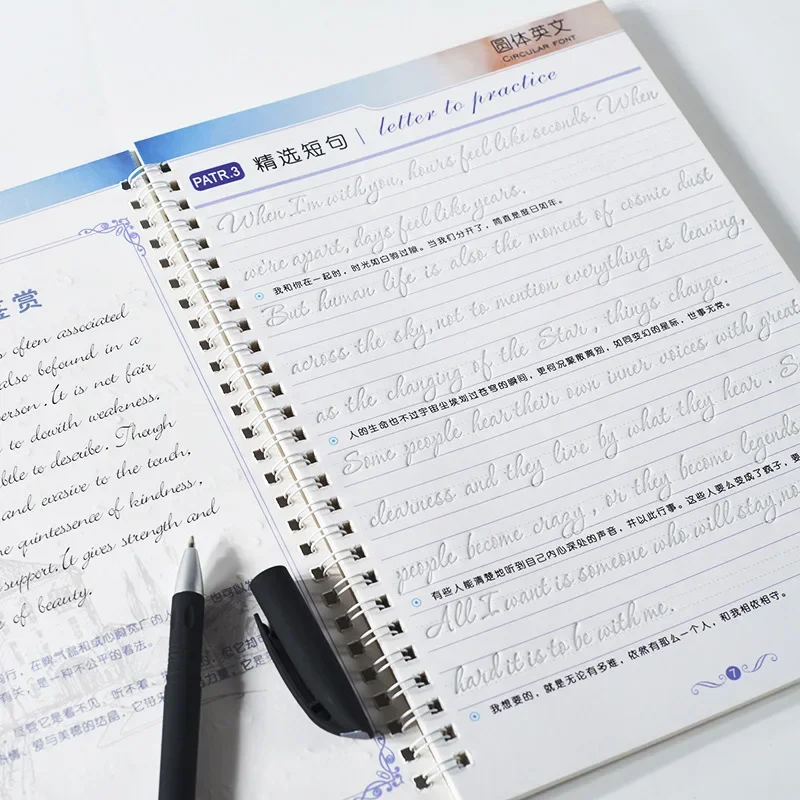 赏
often associated
also bofound in a
person. It is not fair
to dowith weakness.
to describe. Though
and evasive to the touch,
quintessence of kindness,
support. It gives strength and
of beauty.
在脾气器和或心胸宽广的人
是一种不公平的看法。
尽管它是看不见，听不着，
爱与美德的结晶，它带来
圆体英文
CIRCULAR FONT
PATR.3 精选短句 | letter to practice
When I'm with you, hours feel like seconds. When
we're apart, days feel like years.
我和你在一起时，时光如白驹过隙。当我们分开了，简直是度日如年。
But human life is also the moment of cosmic dust
across the sky, not to mention everything is leaving,
as the changing of the Star, things change.
人的生命也不过宇宙尘埃划过苍穹的瞬间，更何况聚散离别，如同变幻的星际，世事无常。
Some people hear their own inner voices with great
clearness and they live by what they hear. S
people become crazy, or they become legends
有些人能清楚地听到自己内心深处的声音，并以此行事。这些人要么变成了疯子，要
All I want is someone who will stay, no
hard it is to be with me.
我想要的，就是无论有多难，依然有那么一个人，和我相依相守。
7